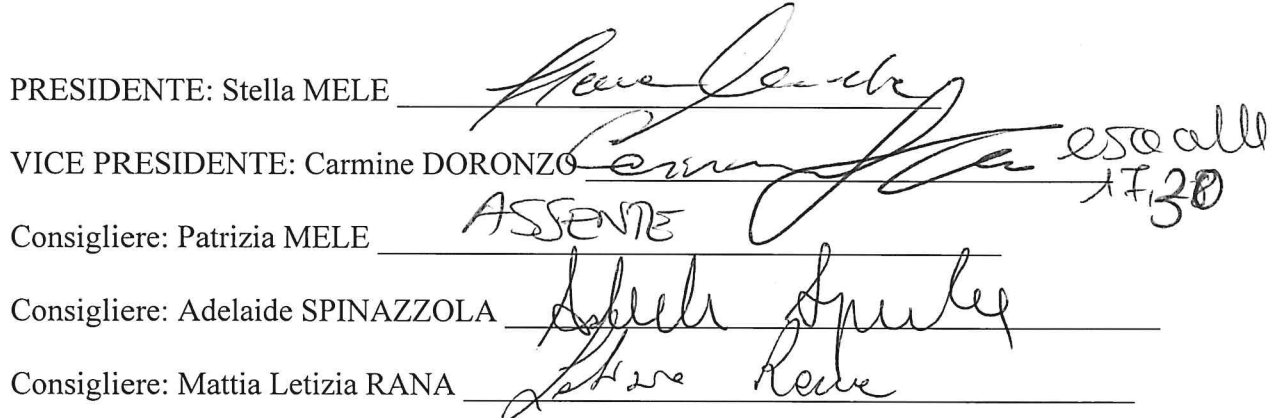 PRESIDENTE: Stella MELE
VICE PRESIDENTE: Carmine DORONZO esce alle
17,30
Consigliere: Patrizia MELE ASSENTE
Consigliere: Adelaide SPINAZZOLA
Consigliere: Mattia Letizia RANA Letizia Rana